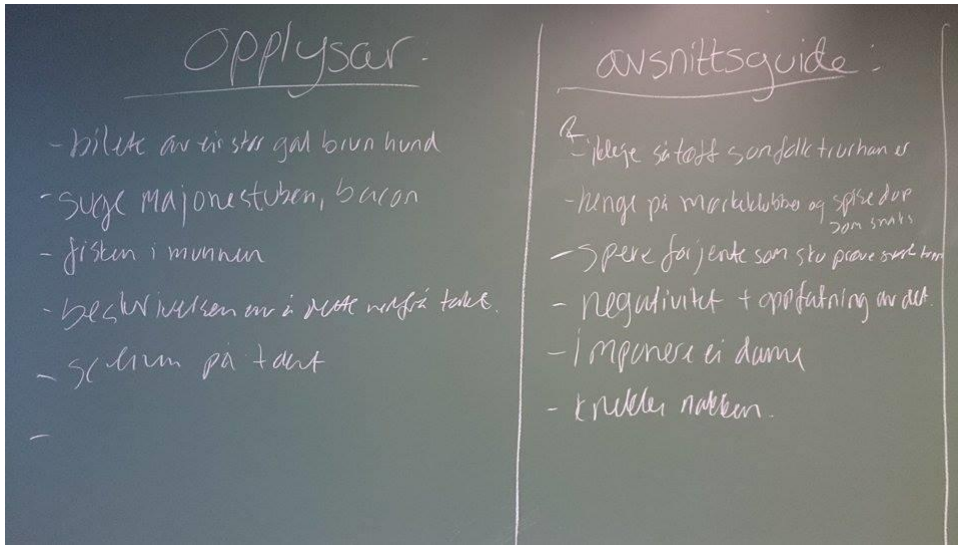 Opplysar:
- bilete av ein stor gal brun hund
- suge majonestuben, bacon
- fisken i munnen
- beskrivelsen av å dette ned frå taket.
- på
-
avsnittsguide:
- ikkje så tøff som folk trur han er
- henge på mørkeklubber og spise dop
som snaks
- spere for jente som sku prøve
- negativitet + oppfatning av det.
- imponere ei dame
- knekker nakken.